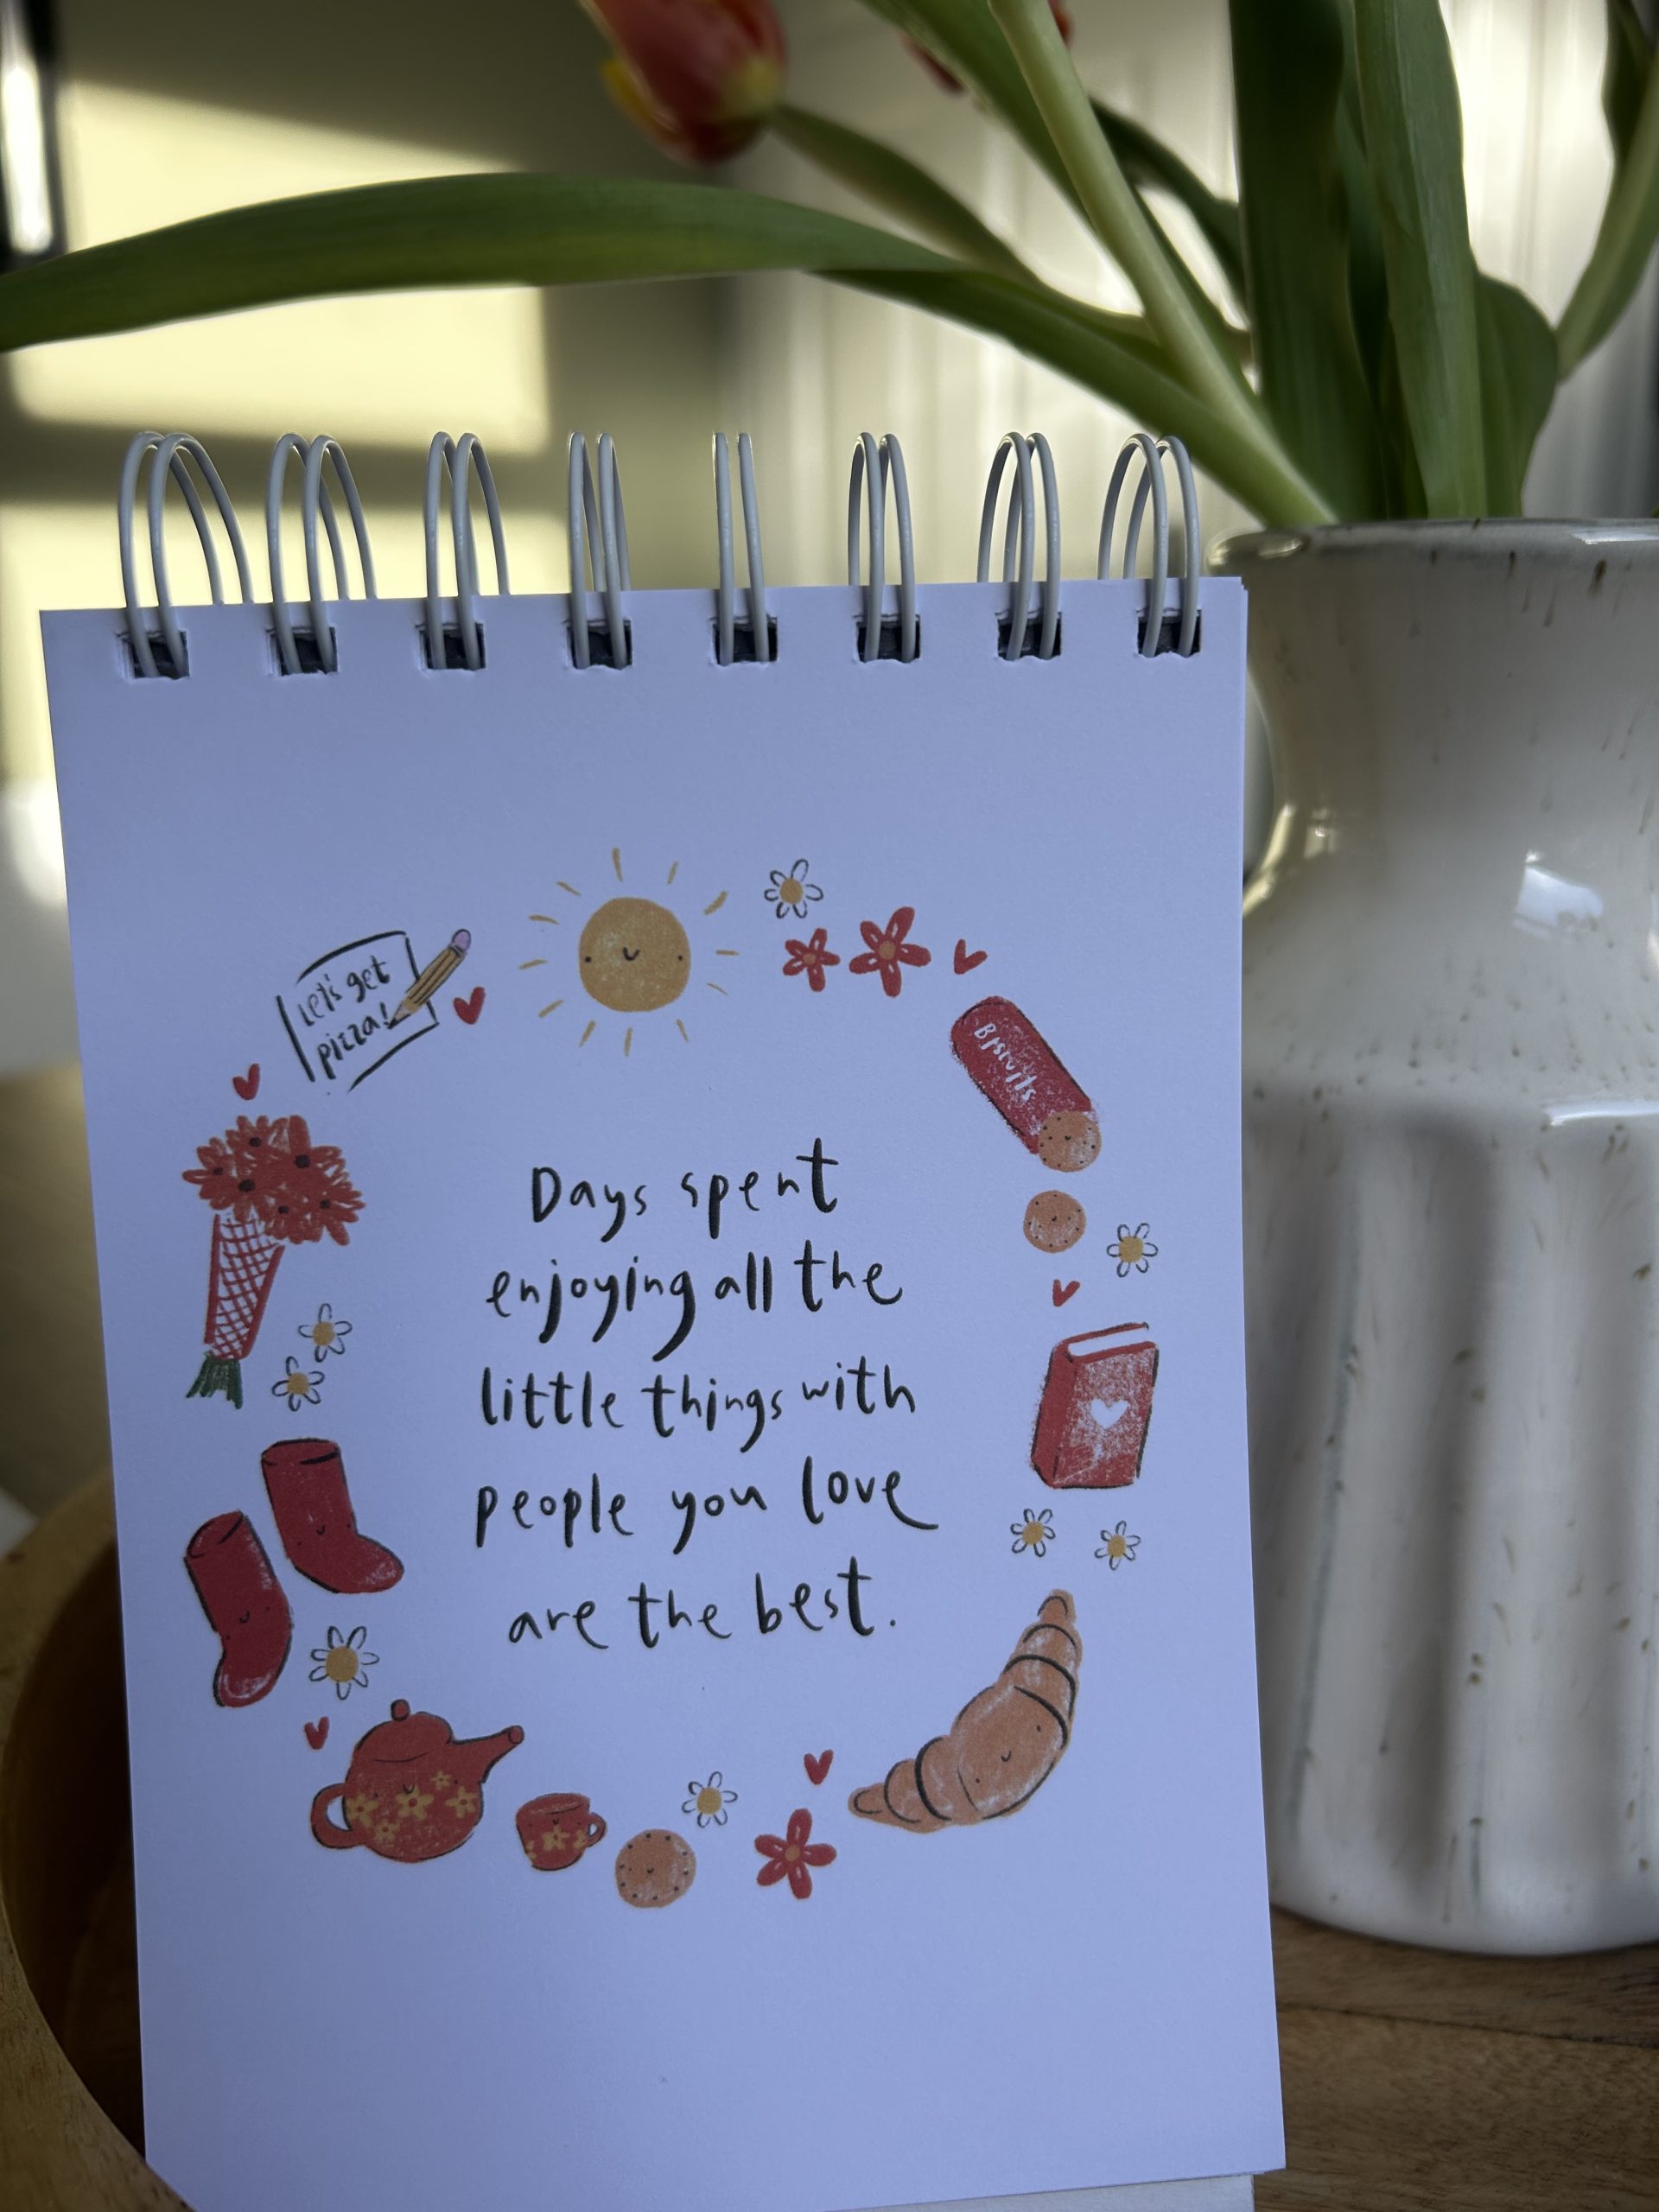 Let's get
pizza!
Biscuits
Days spent
enjoying all the
little things with
people you love
are the best.